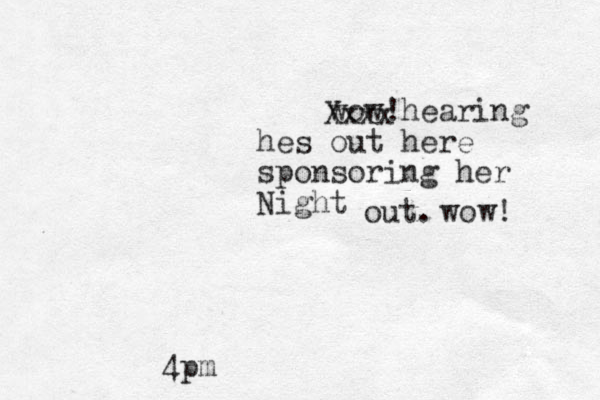 wow!hearing
hes out here
sponsoring her
Night out. wow!
4pm